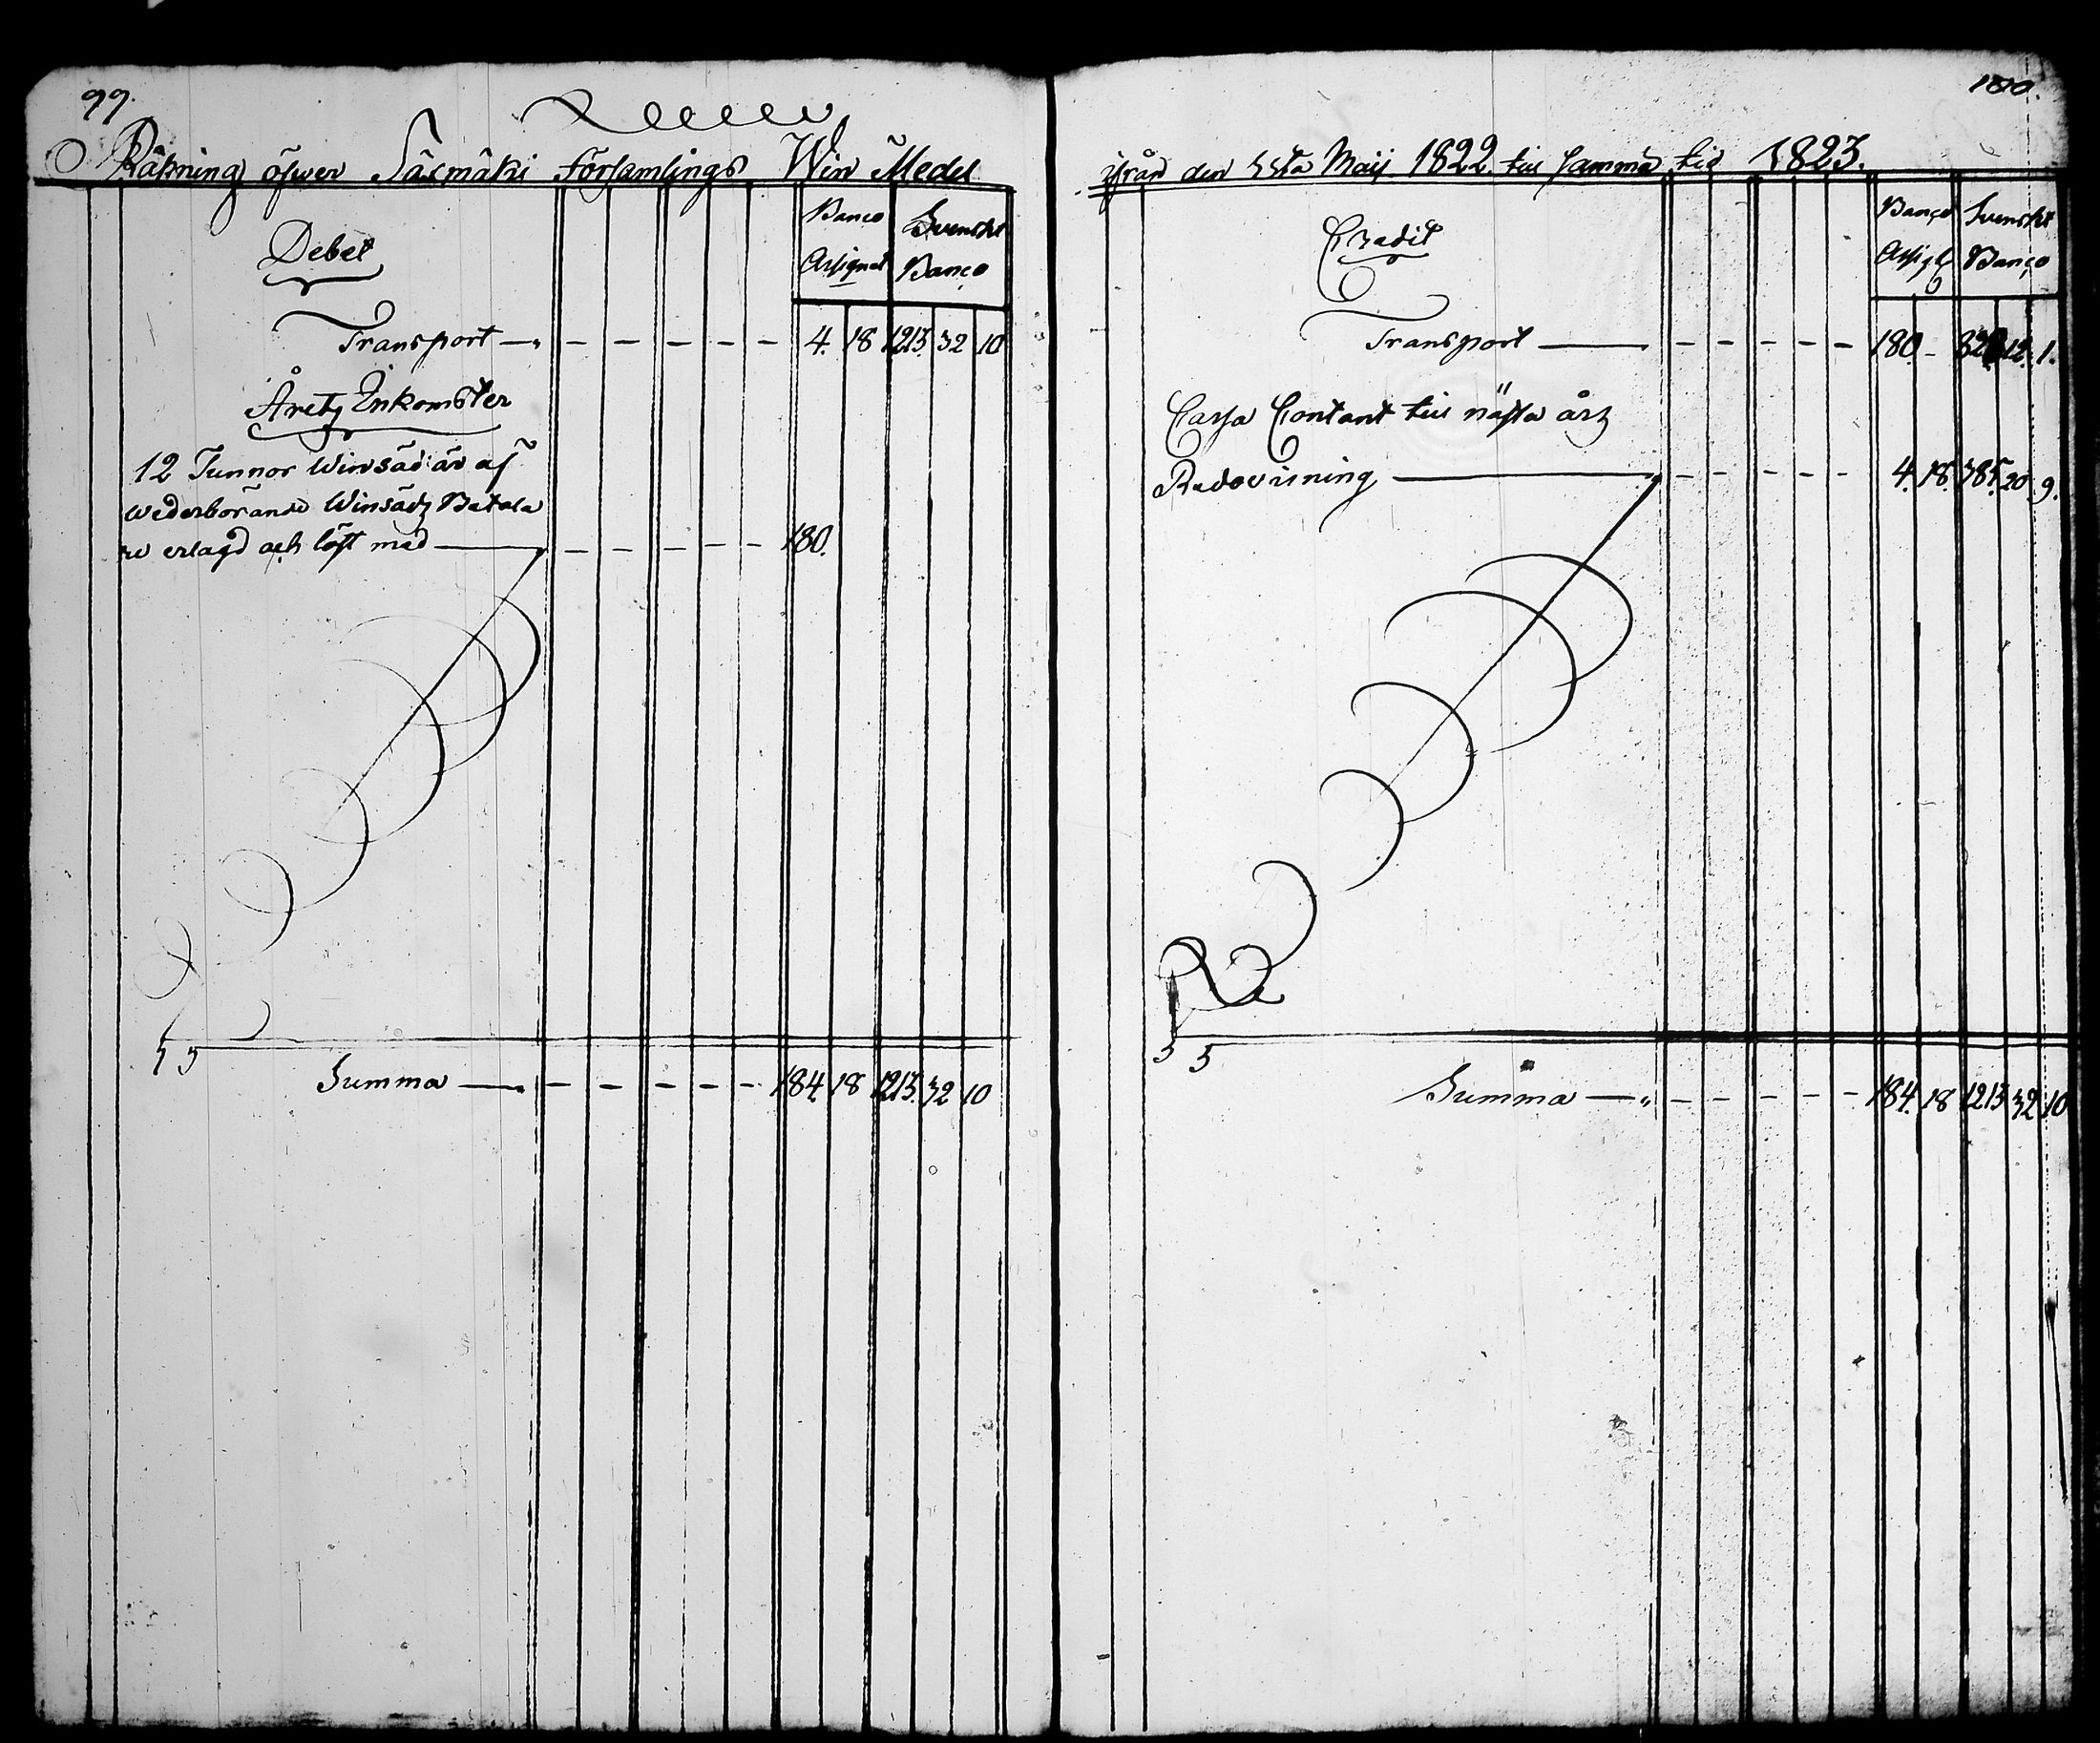 99.
Räkning öfwer Säsmäki Församlings Win Medel
Debet
Banco Assignat
Svenskt Banco
Transport — 4. 18 1213. 32 10
Åretz Inkomster
12 Tunnor Winsäd är af
wederbörande Winsädz Betala
re erlagd och löst med — 180.
Summa — 184 18 1213. 32 10
100.
ifrån den 1sta Maij 1822. till samma tid 1823.
Credit
Banco
Svenskt Banco
Transport — 180. – 12. 1.
Cassa Contant till nästa årz
Redovisning — 4. 18. 385. 20 9.
Summa — 184. 18 1213 32 10